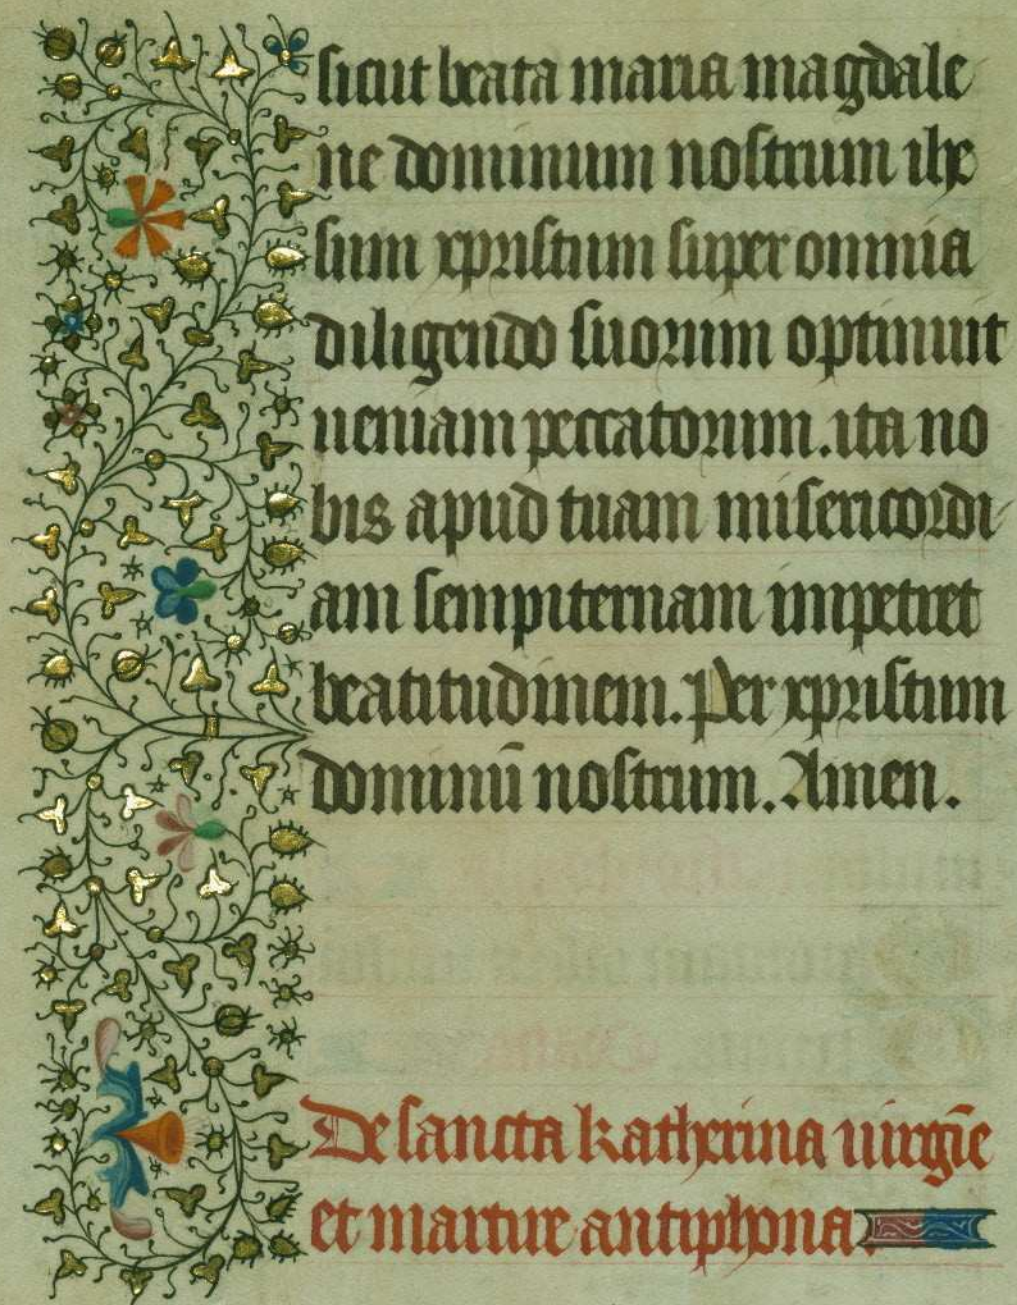 sicut beata maria magdale
ne dominum nostrum ihe
sum xpristum super omnia
diligendo suorum optinuit
ueniam peccatorum. ita no
bis apud tuam misericordi
am sempiternam impetret
beatitudinem. Per xpristum
dominū nostrum. Amen.
De sancta katherina uirgīe
et martire antiphona.